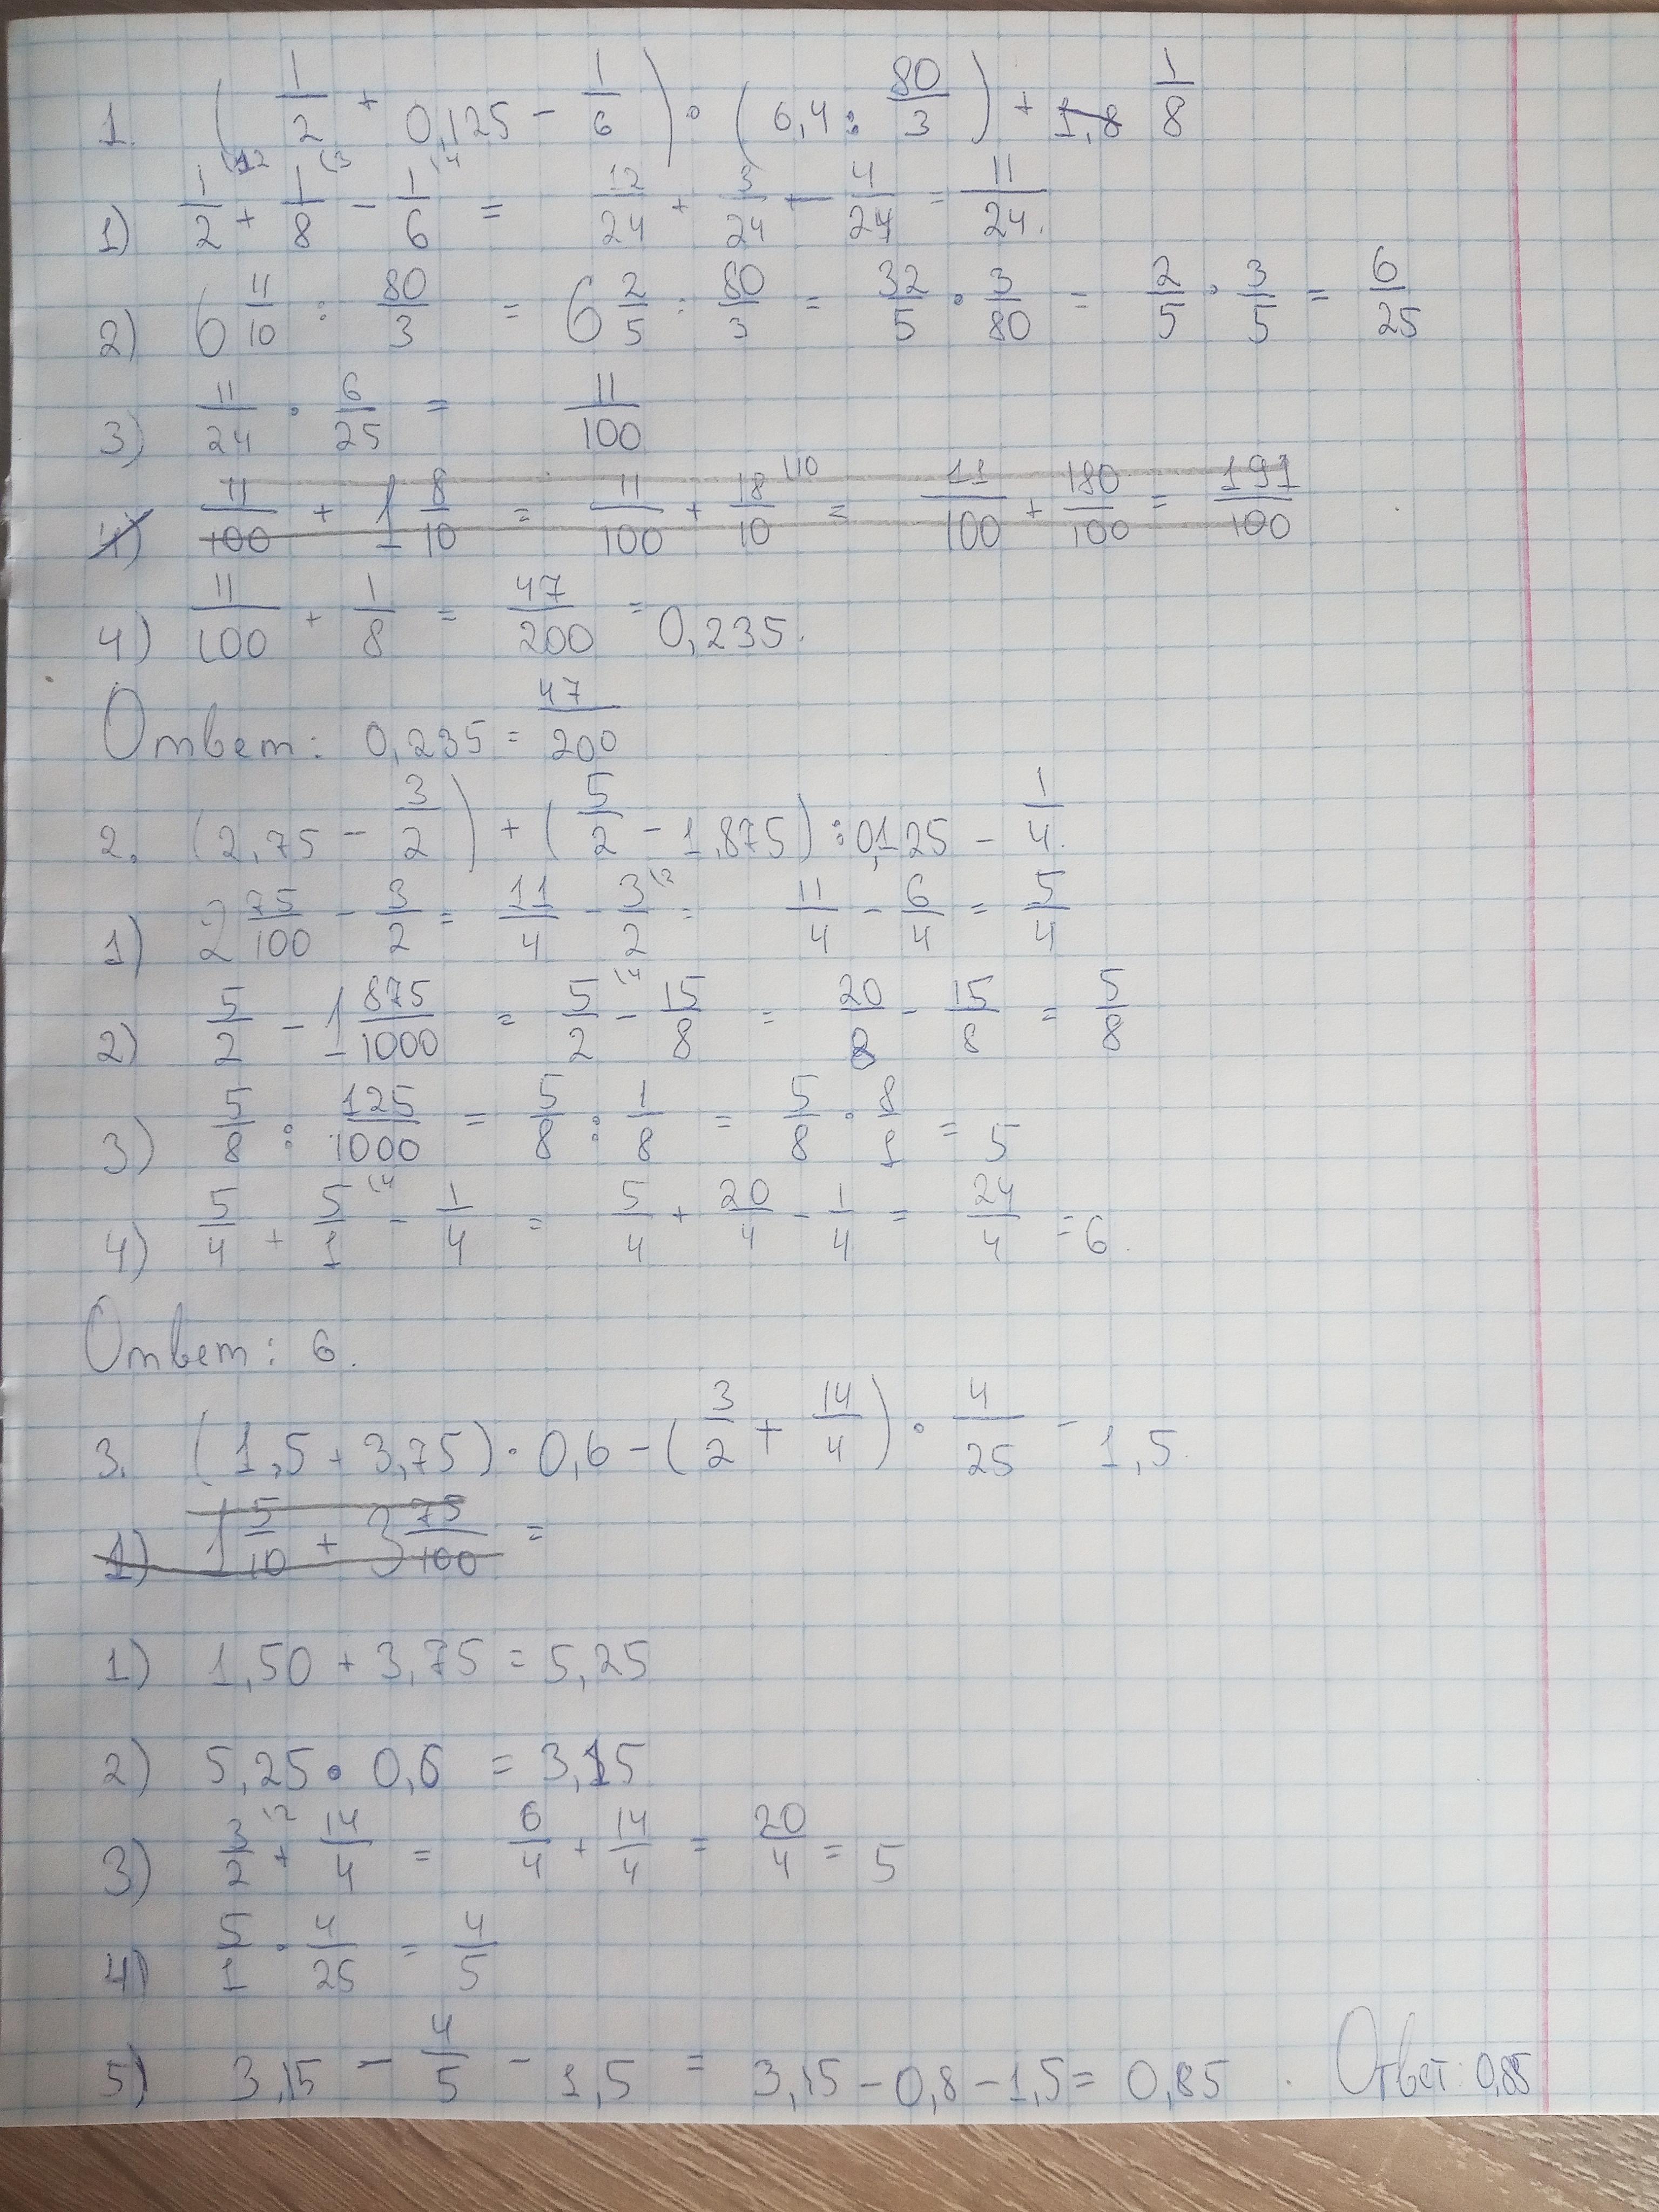 1. (1/2 + 0,125 - 1/6) · (6,4 : 80/3) + 1,8 1/8
1) 1/2 \12 + 1/8 \3 - 1/6 \4 = 12/24 + 3/24 - 4/24 = 11/24.
2) 6 11/10 : 80/3 = 6 2/5 : 80/3 = 32/5 · 3/80 = 2/5 · 3/5 = 6/25
3) 11/24 · 6/25 = 11/100
4) 11/100 + 1 8/10 = 11/100 + 18/10 \10 = 11/100 + 180/100 = 191/100
4) 11/100 + 1/8 = 47/200 = 0,235.
Ответ: 0,235 = 47/200
2. (2,75 - 3/2) + (5/2 - 1,875) : 0,125 - 1/4.
1) 2 75/100 - 3/2 = 11/4 - 3/2 \2 = 11/4 - 6/4 = 5/4
2) 5/2 - 1 875/1000 = 5/2 \4 - 15/8 = 20/8 - 15/8 = 5/8
3) 5/8 : 125/1000 = 5/8 : 1/8 = 5/8 · 8/1 = 5
4) 5/4 + 5/1 \4 - 1/4 = 5/4 + 20/4 - 1/4 = 24/4 = 6.
Ответ: 6.
3. (1,5 + 3,75) · 0,6 - (3/2 + 14/4) · 4/25 - 1,5.
1) 1 5/10 + 3 75/100 =
1) 1,50 + 3,75 = 5,25
2) 5,25 · 0,6 = 3,15
3) 3/2 \2 + 14/4 = 6/4 + 14/4 = 20/4 = 5
4) 5/1 · 4/25 = 4/5
5) 3,15 - 4/5 - 1,5 = 3,15 - 0,8 - 1,5 = 0,85. Ответ: 0,85